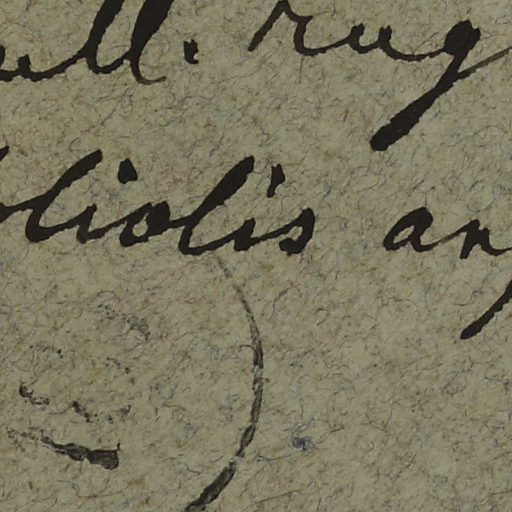 ull. rug
oliolis ang